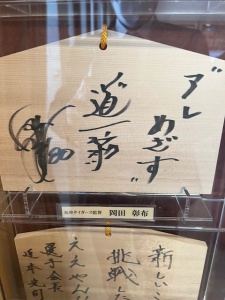 "アレ
めざす
"道一筋"
80
阪神タイガース監督 岡田 彰布
新しいこ
挑戦した
ええやん
選手会長
近本光司